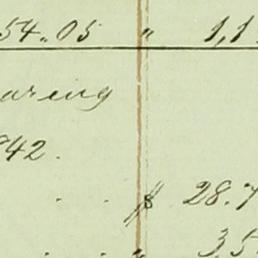 54.05 " 1,1
aring
842.
. . $ 28.7
. . " 3,5